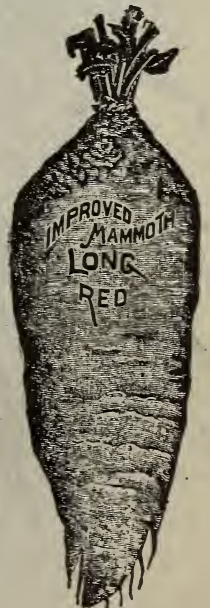 IMPROVED
MAMMOTH
LONG
RED